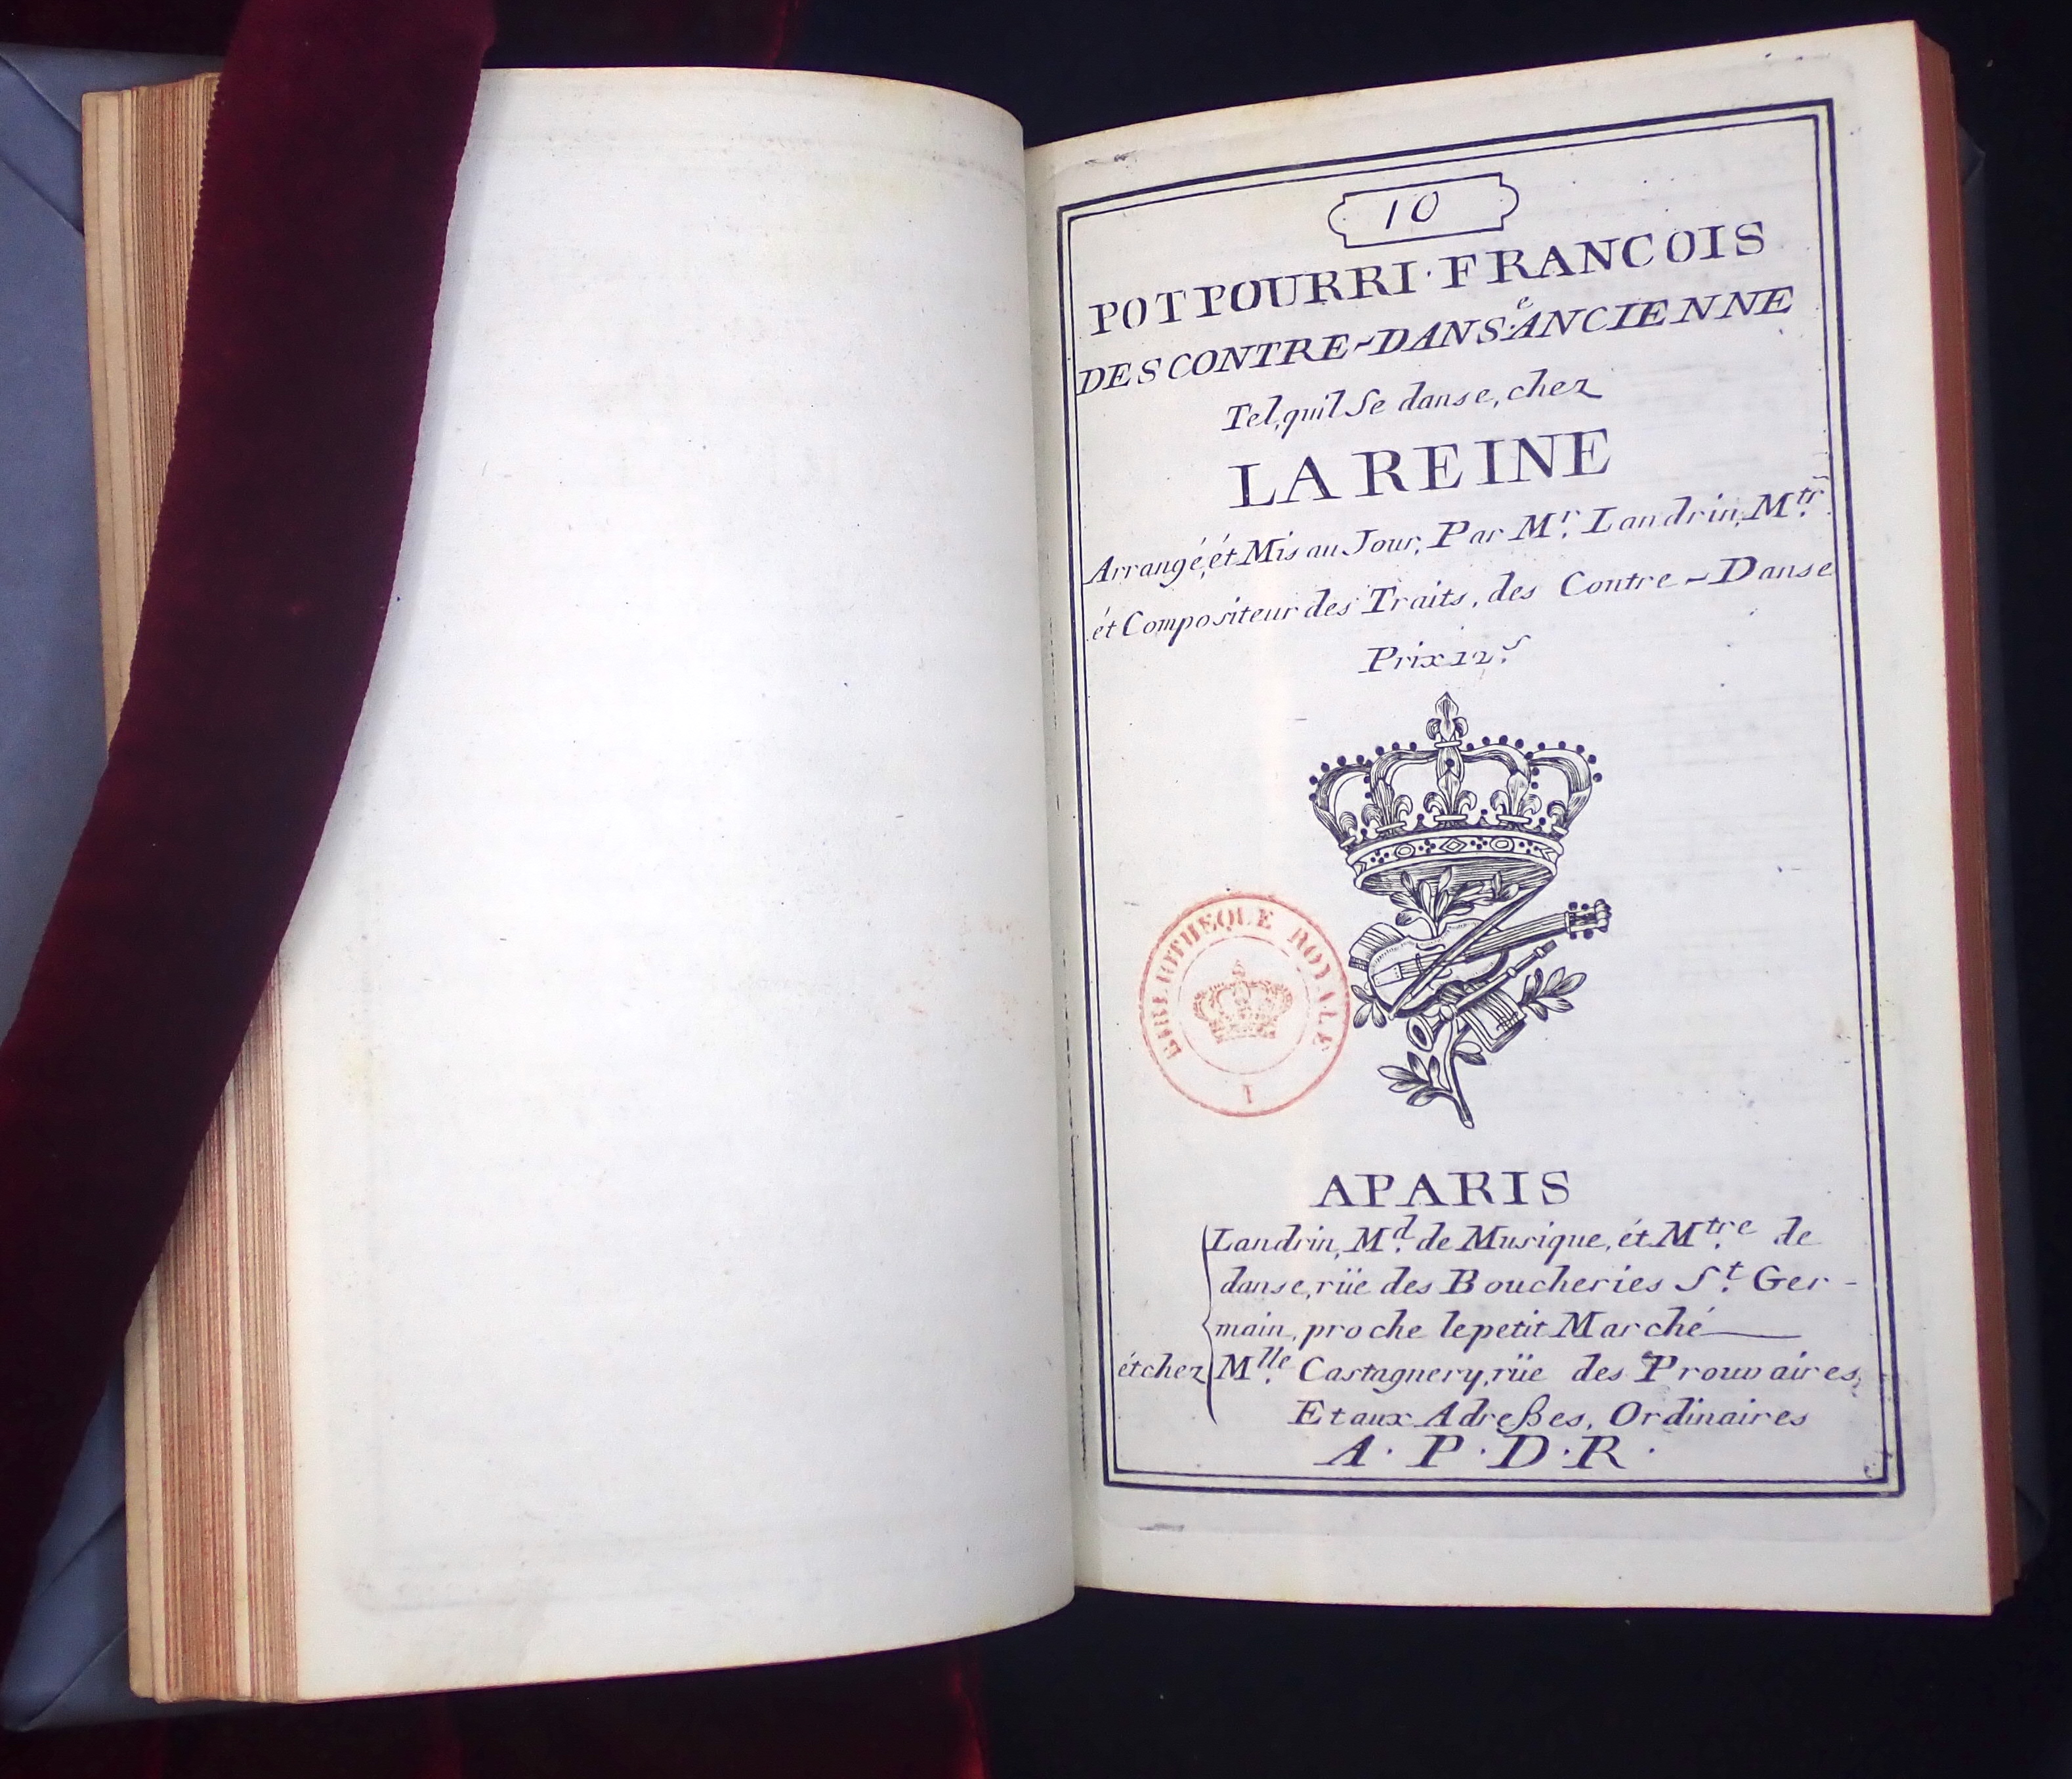 10
POTPOURRI·FRANCOIS
DES CONTRE-DANS.e ANCIENNE
Tel, quil Se danse, chez
LA REINE
Arrangé, ét Mis au Jour, Par Mr. Landrin, Mtr.
ét Compositeur des Traits, des Contre-Danse
Prix 12.s
BIBLIOTHEQUE ROYALE
I
A PARIS
Landrin, Md. de Musique, ét Mtre. de
danse, rüe des Boucheries St. Ger-
main, proche le petit Marché
ét chez Mlle. Castagnery, rüe des Prouvaires,
Et aux Adreßes, Ordinaires
A·P·D·R·